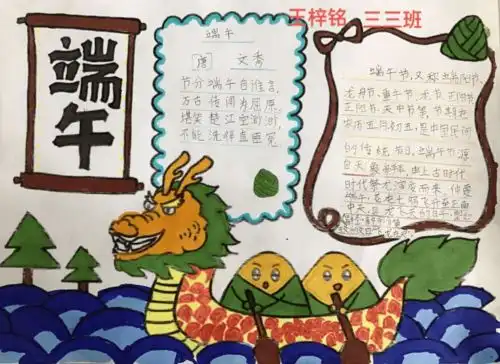 端午
王梓铭 三三班
端午
[唐] 文秀
节分端午自谁言,
万古传闻为屈原,
堪笑楚江空渺渺,
不能洗得直臣冤。
端午节,又称端阳节、
龙舟节、重午节、龙节、正阳节
天中节等,节期在
农历五月初五,是中国民间
的传统节日。端午节源
自天象崇拜,由上古时代
时代祭龙演变而来。仲夏
端午,苍龙七宿飞升至正南
中天,